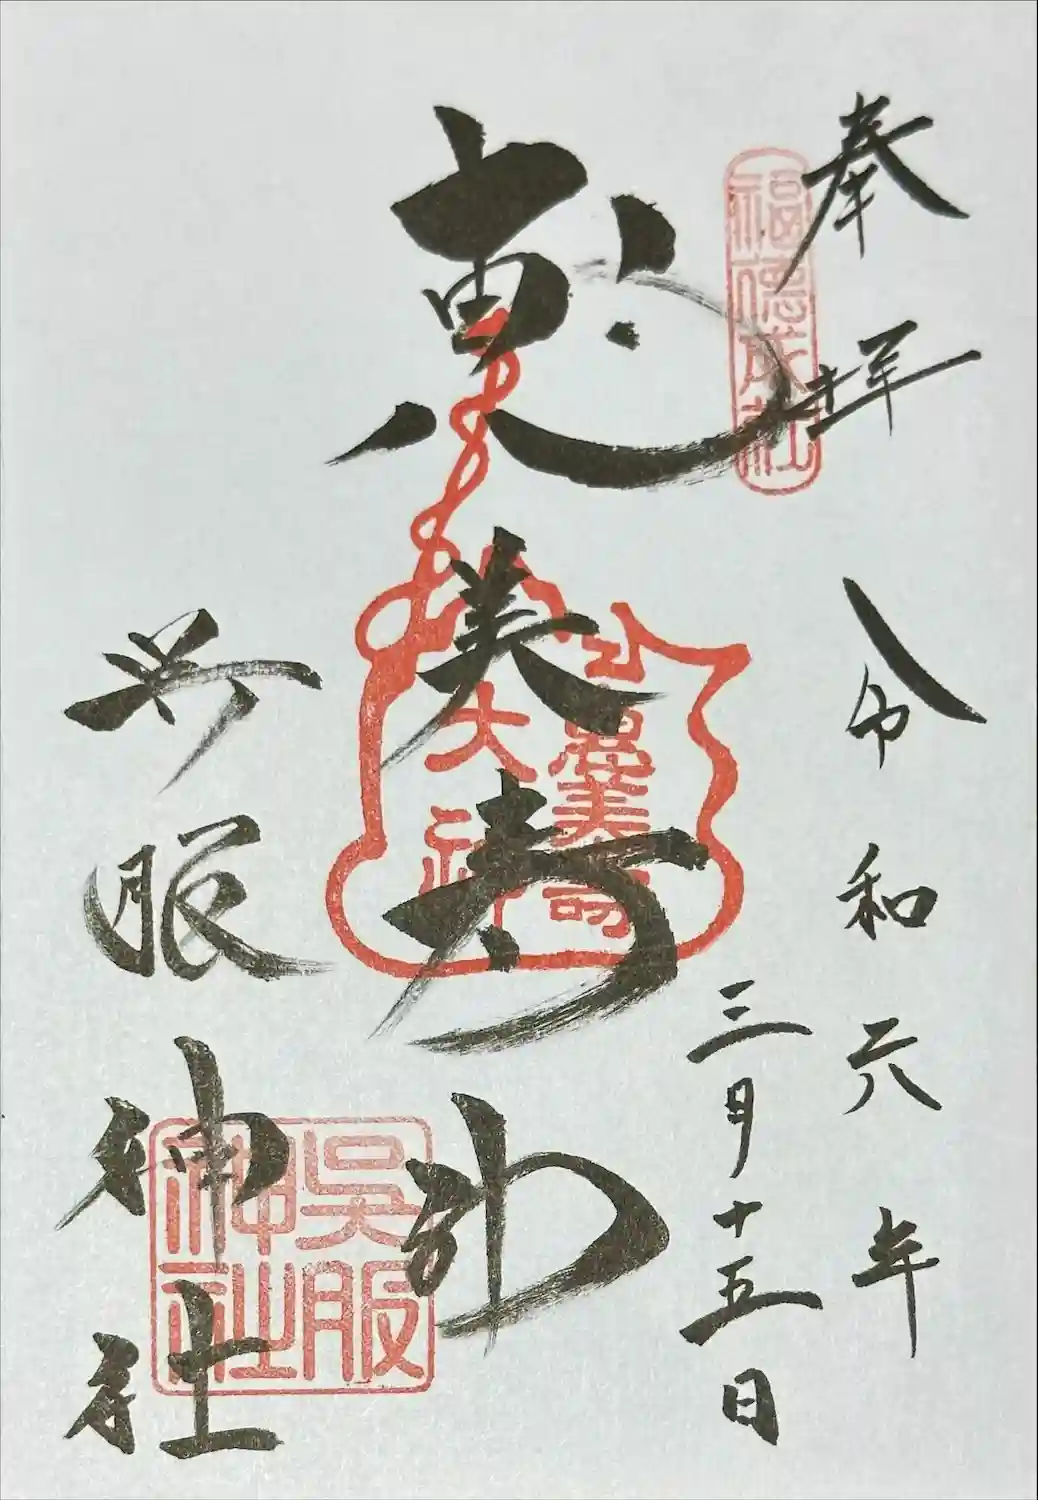 奉拝
福徳成社
令和六年
三月十五日
恵美寿神
恵美寿
大神
呉服神社
呉服
神社